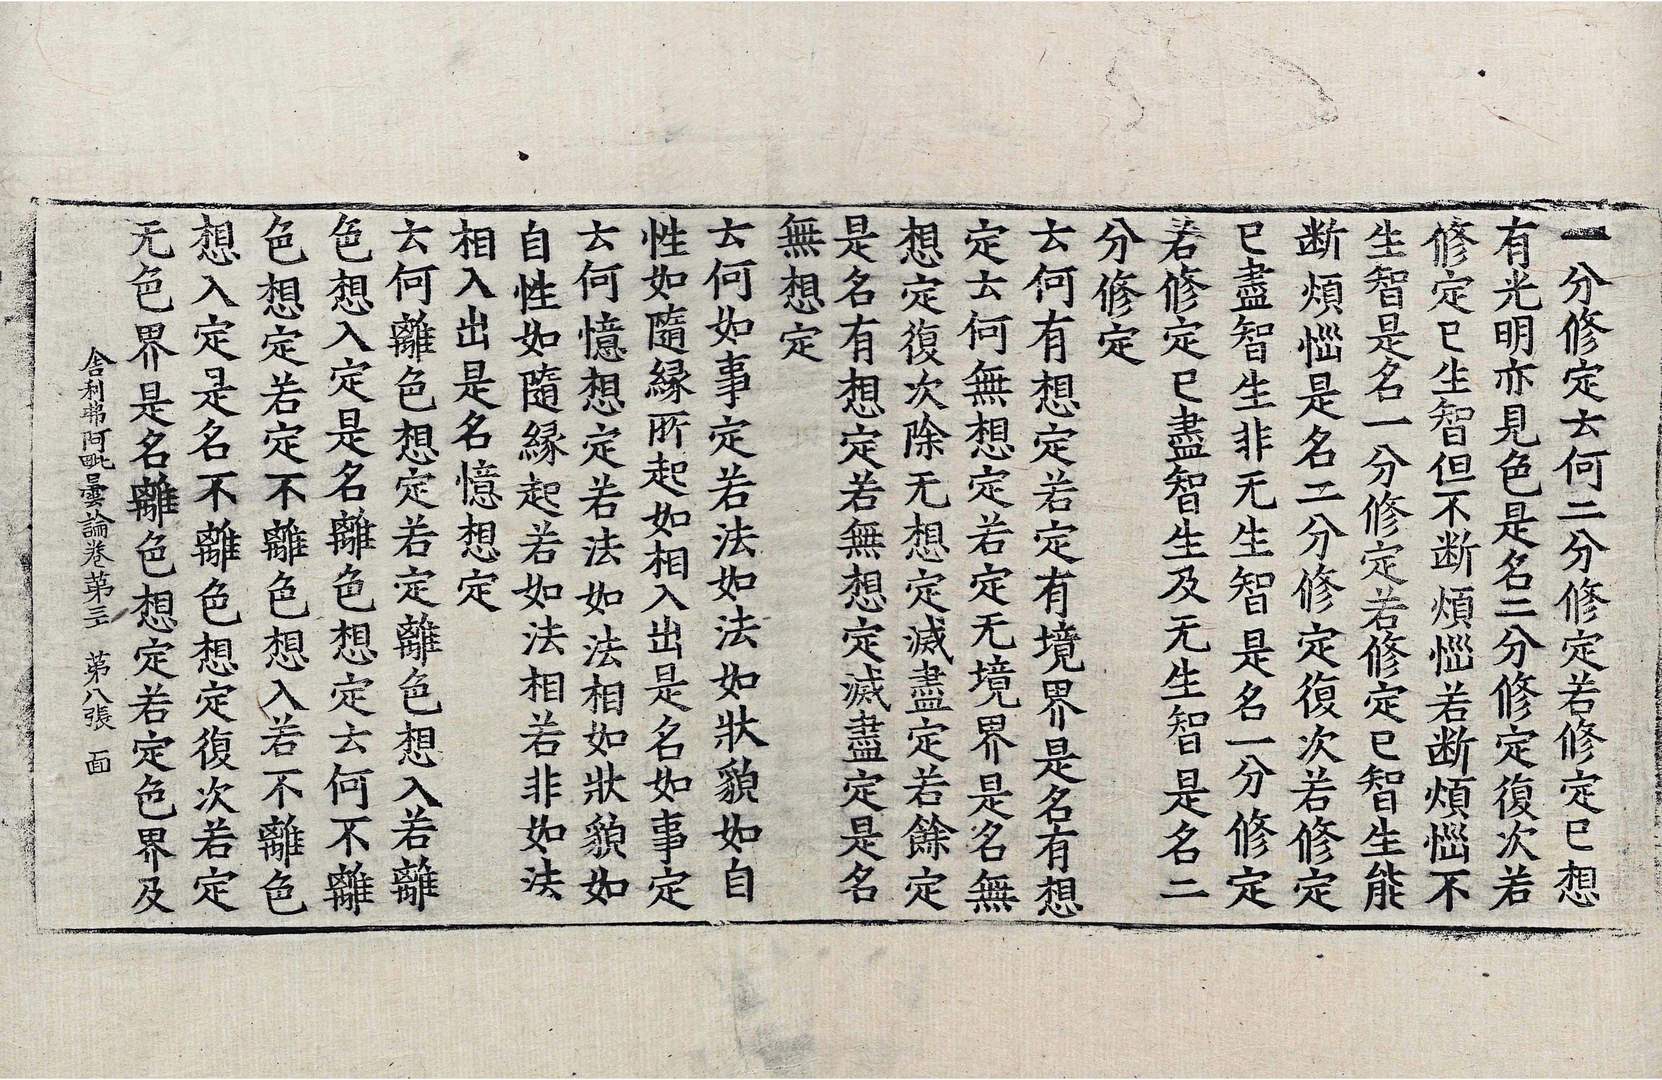 一分修定去何二分修定若修定已想
有光明亦見色是名二分修定復次若
修定已生智但不断煩惱若断煩惱不
生智是名一分修定若修定已智生能
断煩惱是名二分修定復次若修定
已盡智生非无生智是名一分修定
若修定已盡智生及无生智是名二
分修定
去何有想定若定有境界是名有想
定去何無想定若定无境界是名無
想定復次除无想定滅盡定若餘定
是名有想定若無想定滅盡定是名
無想定
去何如事定若法如法如狀貌如自
性如隨緣所起如相入出是名如事定
去何憶想定若法如法相如狀貌如
自性如隨緣起若如法相若非如法
相入出是名憶想定
去何離色想定若定離色想入若離
色想入定是名離色想定去何不離
色想定若定不離色想入若不離色
想入定是名不離色想定復次若定
无色界是名離色想定若定色界及
舍利弗阿毗曇論卷苐三 苐八張 面